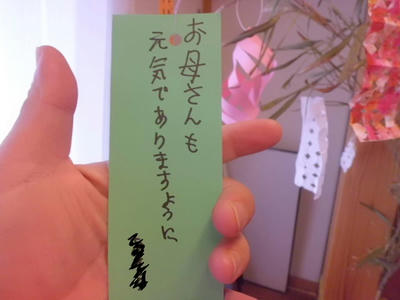 お母さんも
元気でありますように